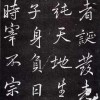 者誕發書
純天地生
子身負日
時宰不宗